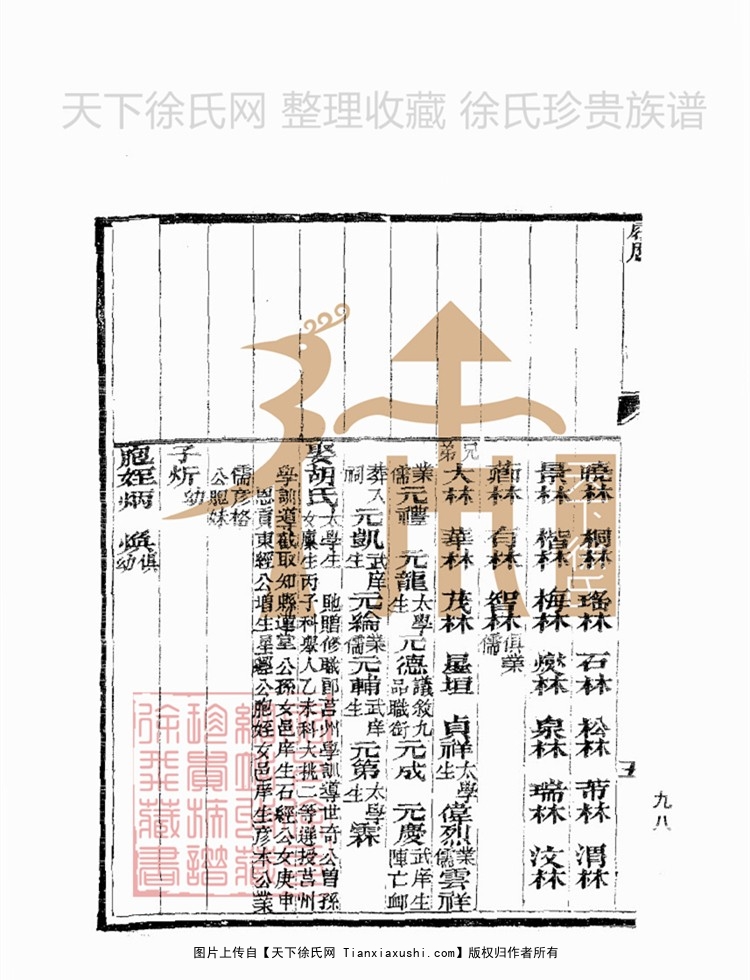 天下徐氏网 整理收藏 徐氏珍贵族谱
曉林 桐林 瑤林 石林 松林 芾林 渭林
景林 楷林 梅林 燮林 泉林 瑞林 汶林
林 林 智林 俱業儒
兄弟
大林 華林 茂林 星垣 貞祥太學生 偉烈業儒 雲祥
業儒 元禮 元龍太學生 元德議敘九品職銜 元成 元慶武庠生陣亡卹
葬入祠 元凱武庠生 元綸業儒 元輔武庠生 元第太學生 霖
娶胡氏太學生 貤贈修職郎莒州學訓導世奇公曾孫
女廩生丙子科舉人乙未科大挑二等選授莒州
學訓導截取知縣蓮堂公孫女邑庠生石經公女庚申
恩貢東經公增生星經公胞姪女邑庠生彥本公業
儒彥格公胞妹
子炘幼
胞姪炳 煥俱幼
五
九八
图片上传自【天下徐氏网 Tianxiaxushi.com】版权归作者所有